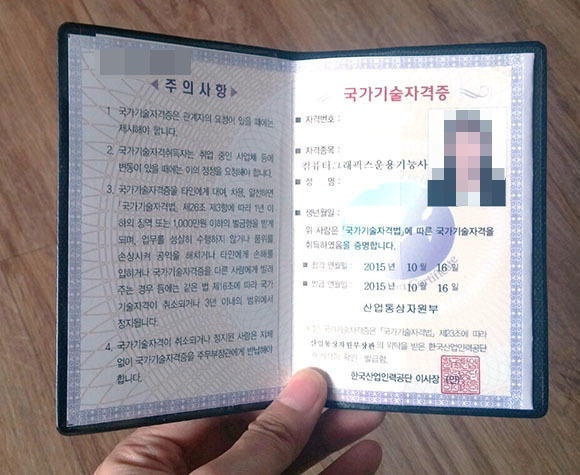 주의사항
1. 국가기술자격증은 관계자의 요청이 있을 때에는
제시해야 합니다.
2. 국가기술자격취득자는 취업 중인 사업체 등에
변동이 있을 때에는 이의 정정을 요청해야 합니다.
3. 국가기술자격증을 타인에게 대여, 차용, 알선하면
「국가기술자격법」 제26조 제3항에 따라 1년 이
하의 징역 또는 1,000만원 이하의 벌금형을 받게
되며, 업무를 성실히 수행하지 않거나 품위를
손상시켜 공익을 해치거나 타인에게 손해를
입하거나 국가기술자격증을 다른 사람에게 빌려
주는 경우 등에는 같은 법 제16조에 따라 국가
기술자격이 취소되거나 3년 이내의 범위에서
정지됩니다.
4. 국가기술자격이 취소되거나 정지된 사람은 지체
없이 국가기술자격증을 주무부장관에게 반납해야
합니다.
국가기술자격증
자격번호 :
자격종목 :
컴퓨터그래픽스운용기능사
성 명 :
생년월일 :
위 사람은 「국가기술자격법」에 따른 국가기술자격을
취득하였음을 증명합니다.
합격 연월일 : 2015년 10월 16일
발급 연월일 : 2015년 10월 16일
산업통상자원부
국가기술자격증은 「국가기술자격법」 제23조에 따라
산업통상자원부장관의 위탁을 받은 한국산업인력공단
확인·발급함.
한국산업인력공단 이사장 (인)